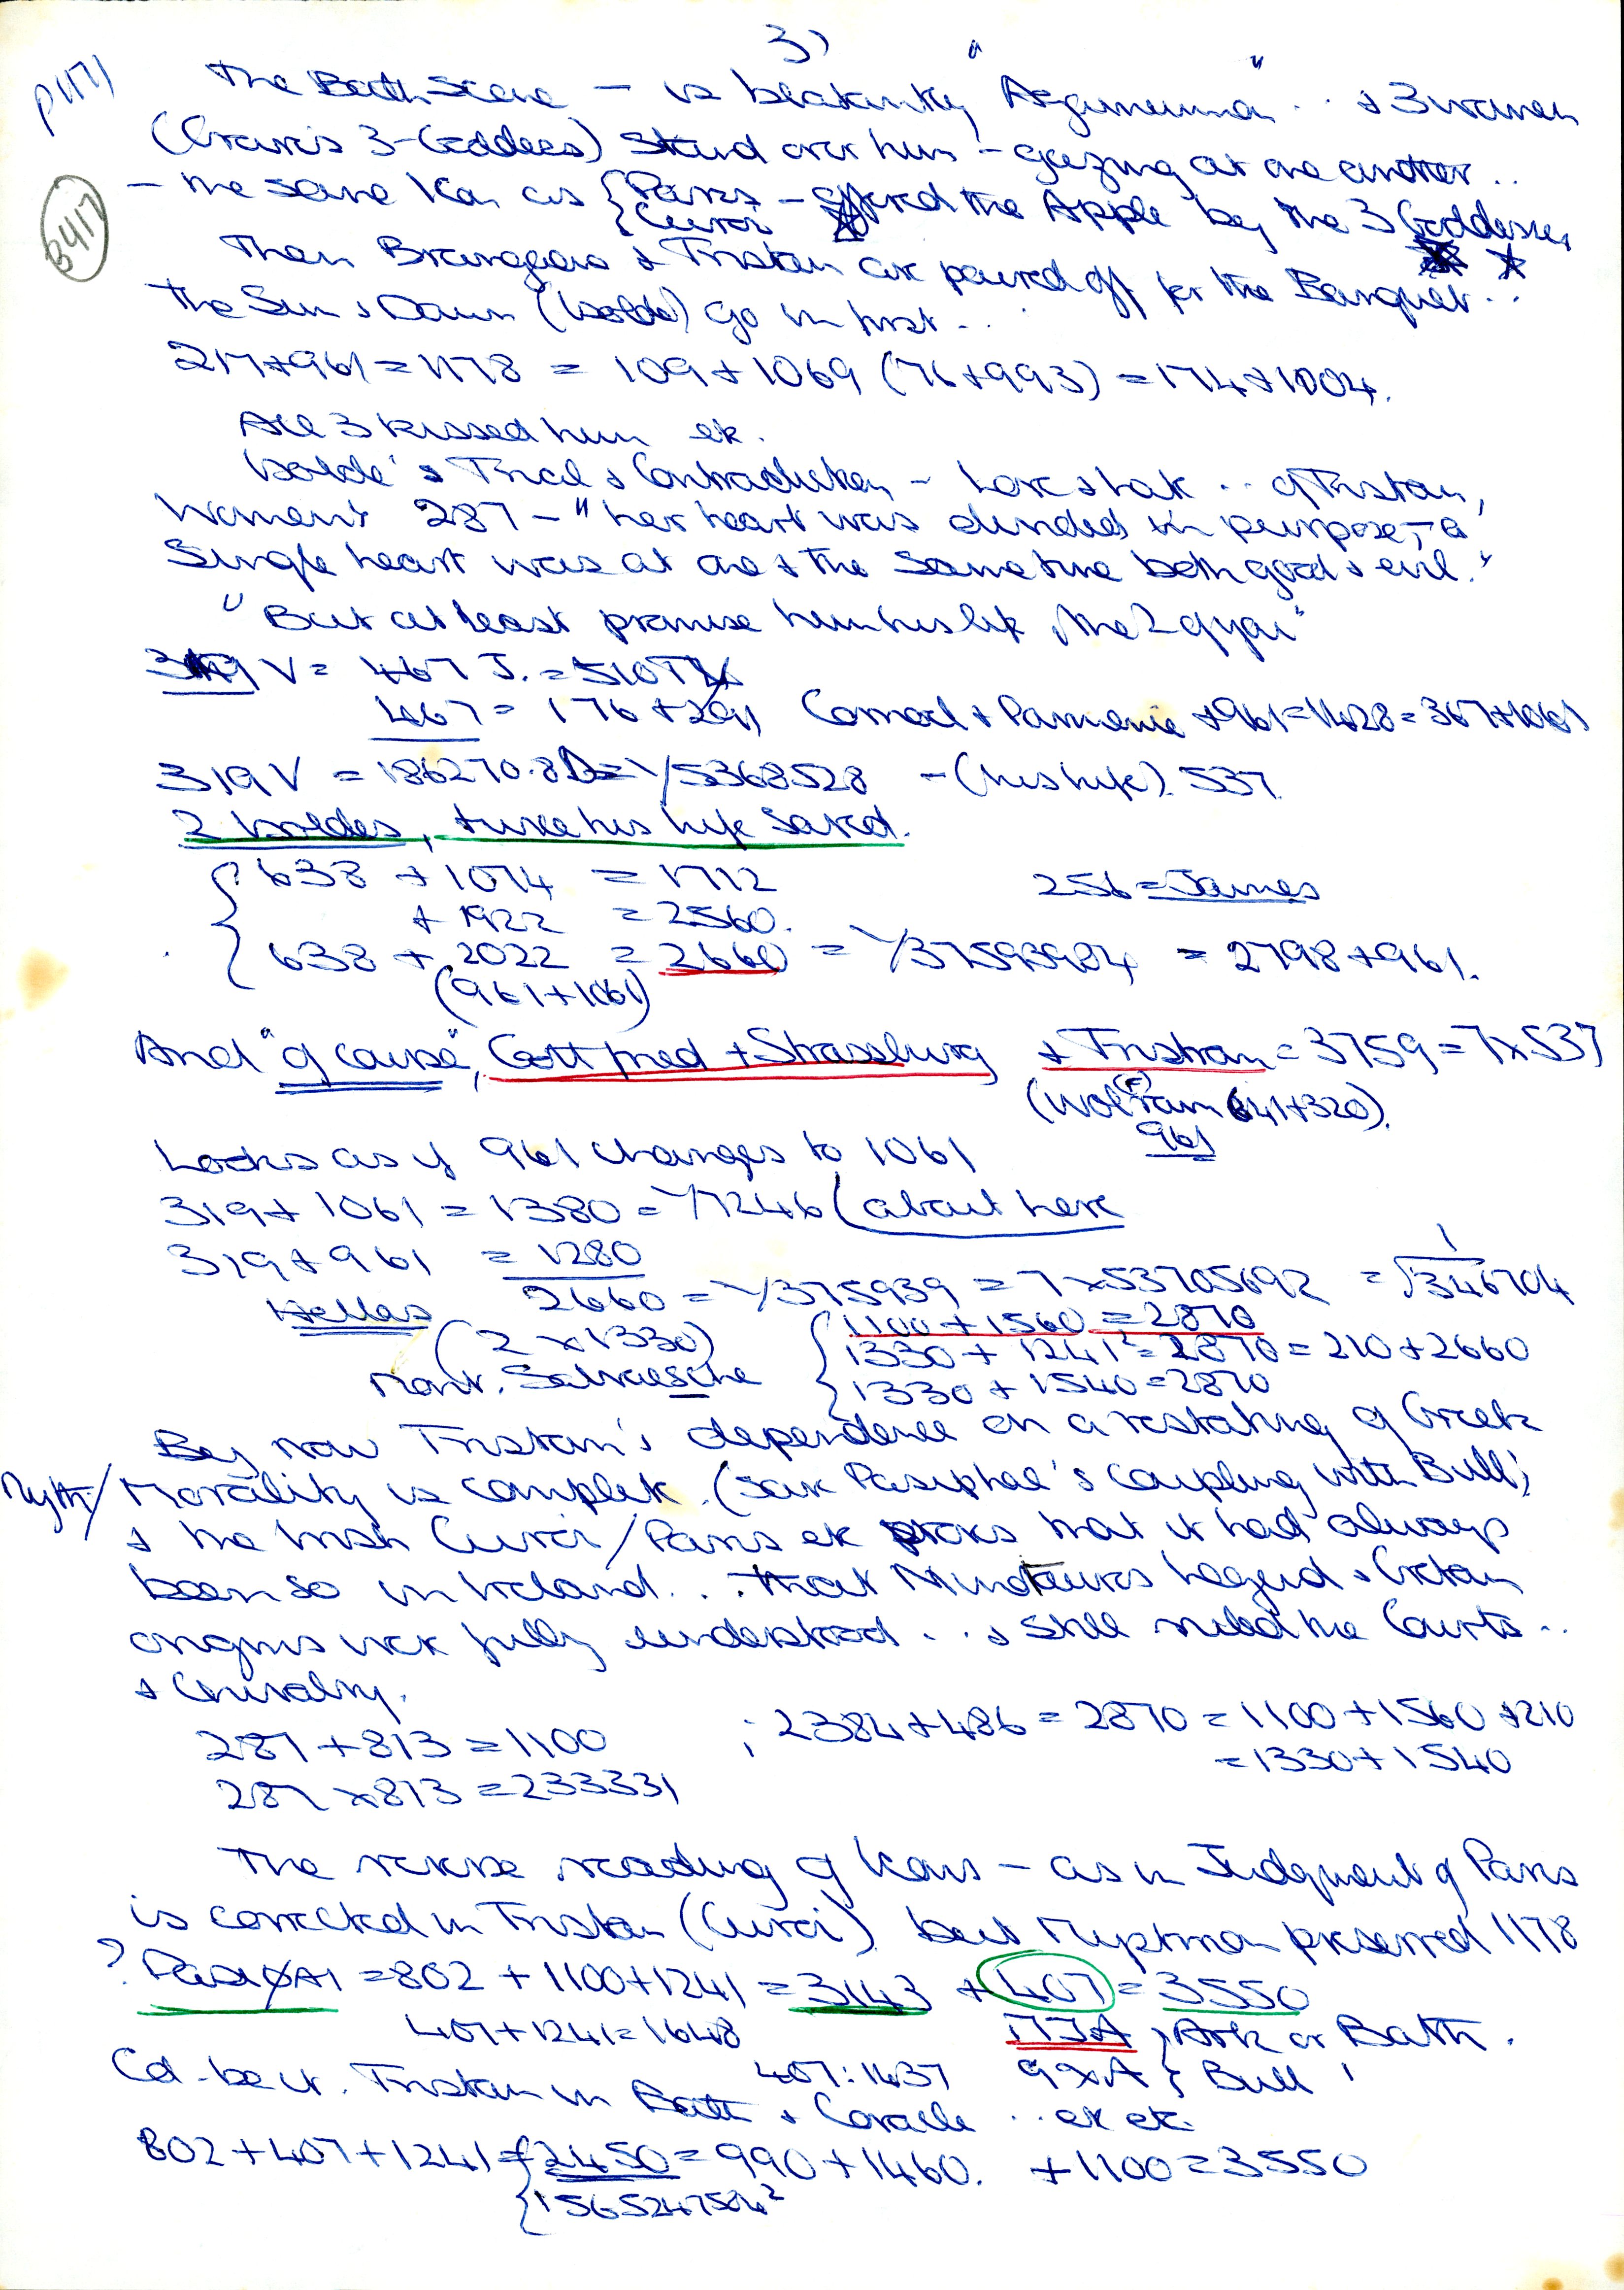 3)
p1171
B417
The Bath Scene – is blatantly "Agamemnon" .. & 3 women
(Graves 3-Goddess) Stand over him – gazing at one another ..
– the same Ikon as { Paris – offered the Apple by the 3 Goddesses
{ Curoi
Then Brangaene & Tristan are paired off for the Banquet ..
The Sun & Dawn (Isolde) go in first ..
217+961 = 1178 = 109+1069 (76+993) = 174+1004.
All 3 kissed him etc.
Isolde's Trial & Contradiction – Love & hate .. of Tristan,
Women's 287 – "her heart was divided in purpose, – a
Single heart was at one & the same time both good & evil."
"But at least promise him his life, the 2 of you"
319 V = 467 J. = 510
467 = 176 + 291, Comod + Parmenie + 961 = 1428 = 367+1061
319 V = 186270.8 = √5368528 – (his life). 537
2 Isoldes, twice his life saved.
{ 638 + 1074 = 1712
256 = James
+ 1922 = 2560.
638 + 2022 = 2660 = √37593984 = 2798+961.
(961+1061)
And "of course", Gottfried + Strassburg + Tristran = 3759 = 7x537
(Wolfram 641+320).
961
Looks as if 961 changes to 1061
319 + 1061 = 1380 = √7246 (about here
319 + 961 = 1280
2660 = √375939 = 7x53705692 = √346704
Hellas
(2 x 1330)
{ 1100 + 1560 = 2870
1330 + 1241 = 2870 = 210+2660
Mont. Salvaesche
1330 + 1540 = 2870
By now Tristan's dependence on a restating of Greek
Myth/ Morality is complete. (save Pasiphae's coupling with Bull)
& the Irish Curoi/Paris etc proves that it had always
been so in Ireland .. that Minotaurs legend & Cretan
origins were fully understood .. & still ruled the Courts ..
& Chivalry.
287 + 813 = 1100 ; 2384+486 = 2870 = 1100+1560+210
= 1330+1540
287 x 813 = 233331
The reverse reading of Ikons – as in Judgment of Paris
is corrected in Tristan (Curoi) but preserved 1178
? = 802 + 1100+1241 = 3143 + 407 = 3550
407+1241 = 1648 Ark or Bath.
Cd. be it. Tristan in Bath & Coracle .. etc etc.
407:1437 Bull
802+407+1241 = { 2450 = 990+1460. +1100 = 3550
{ 1565247584²